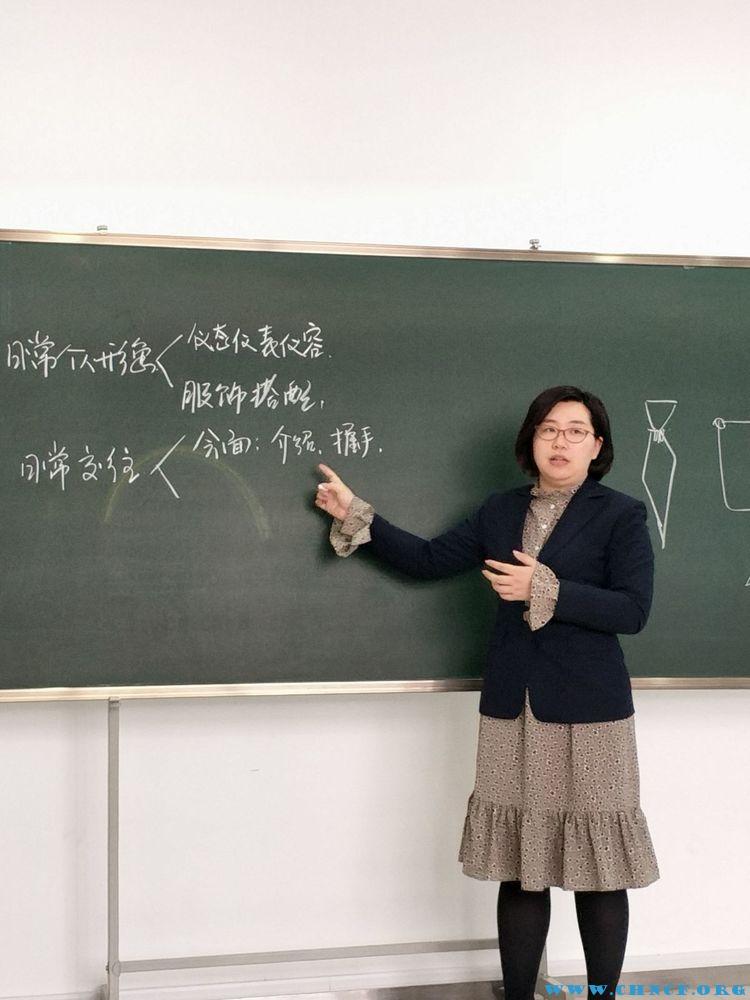 日常个人形象 仪态仪表仪容.
服饰搭配.
日常交往 会面:介绍、握手.
WWW.CHNCF.ORG